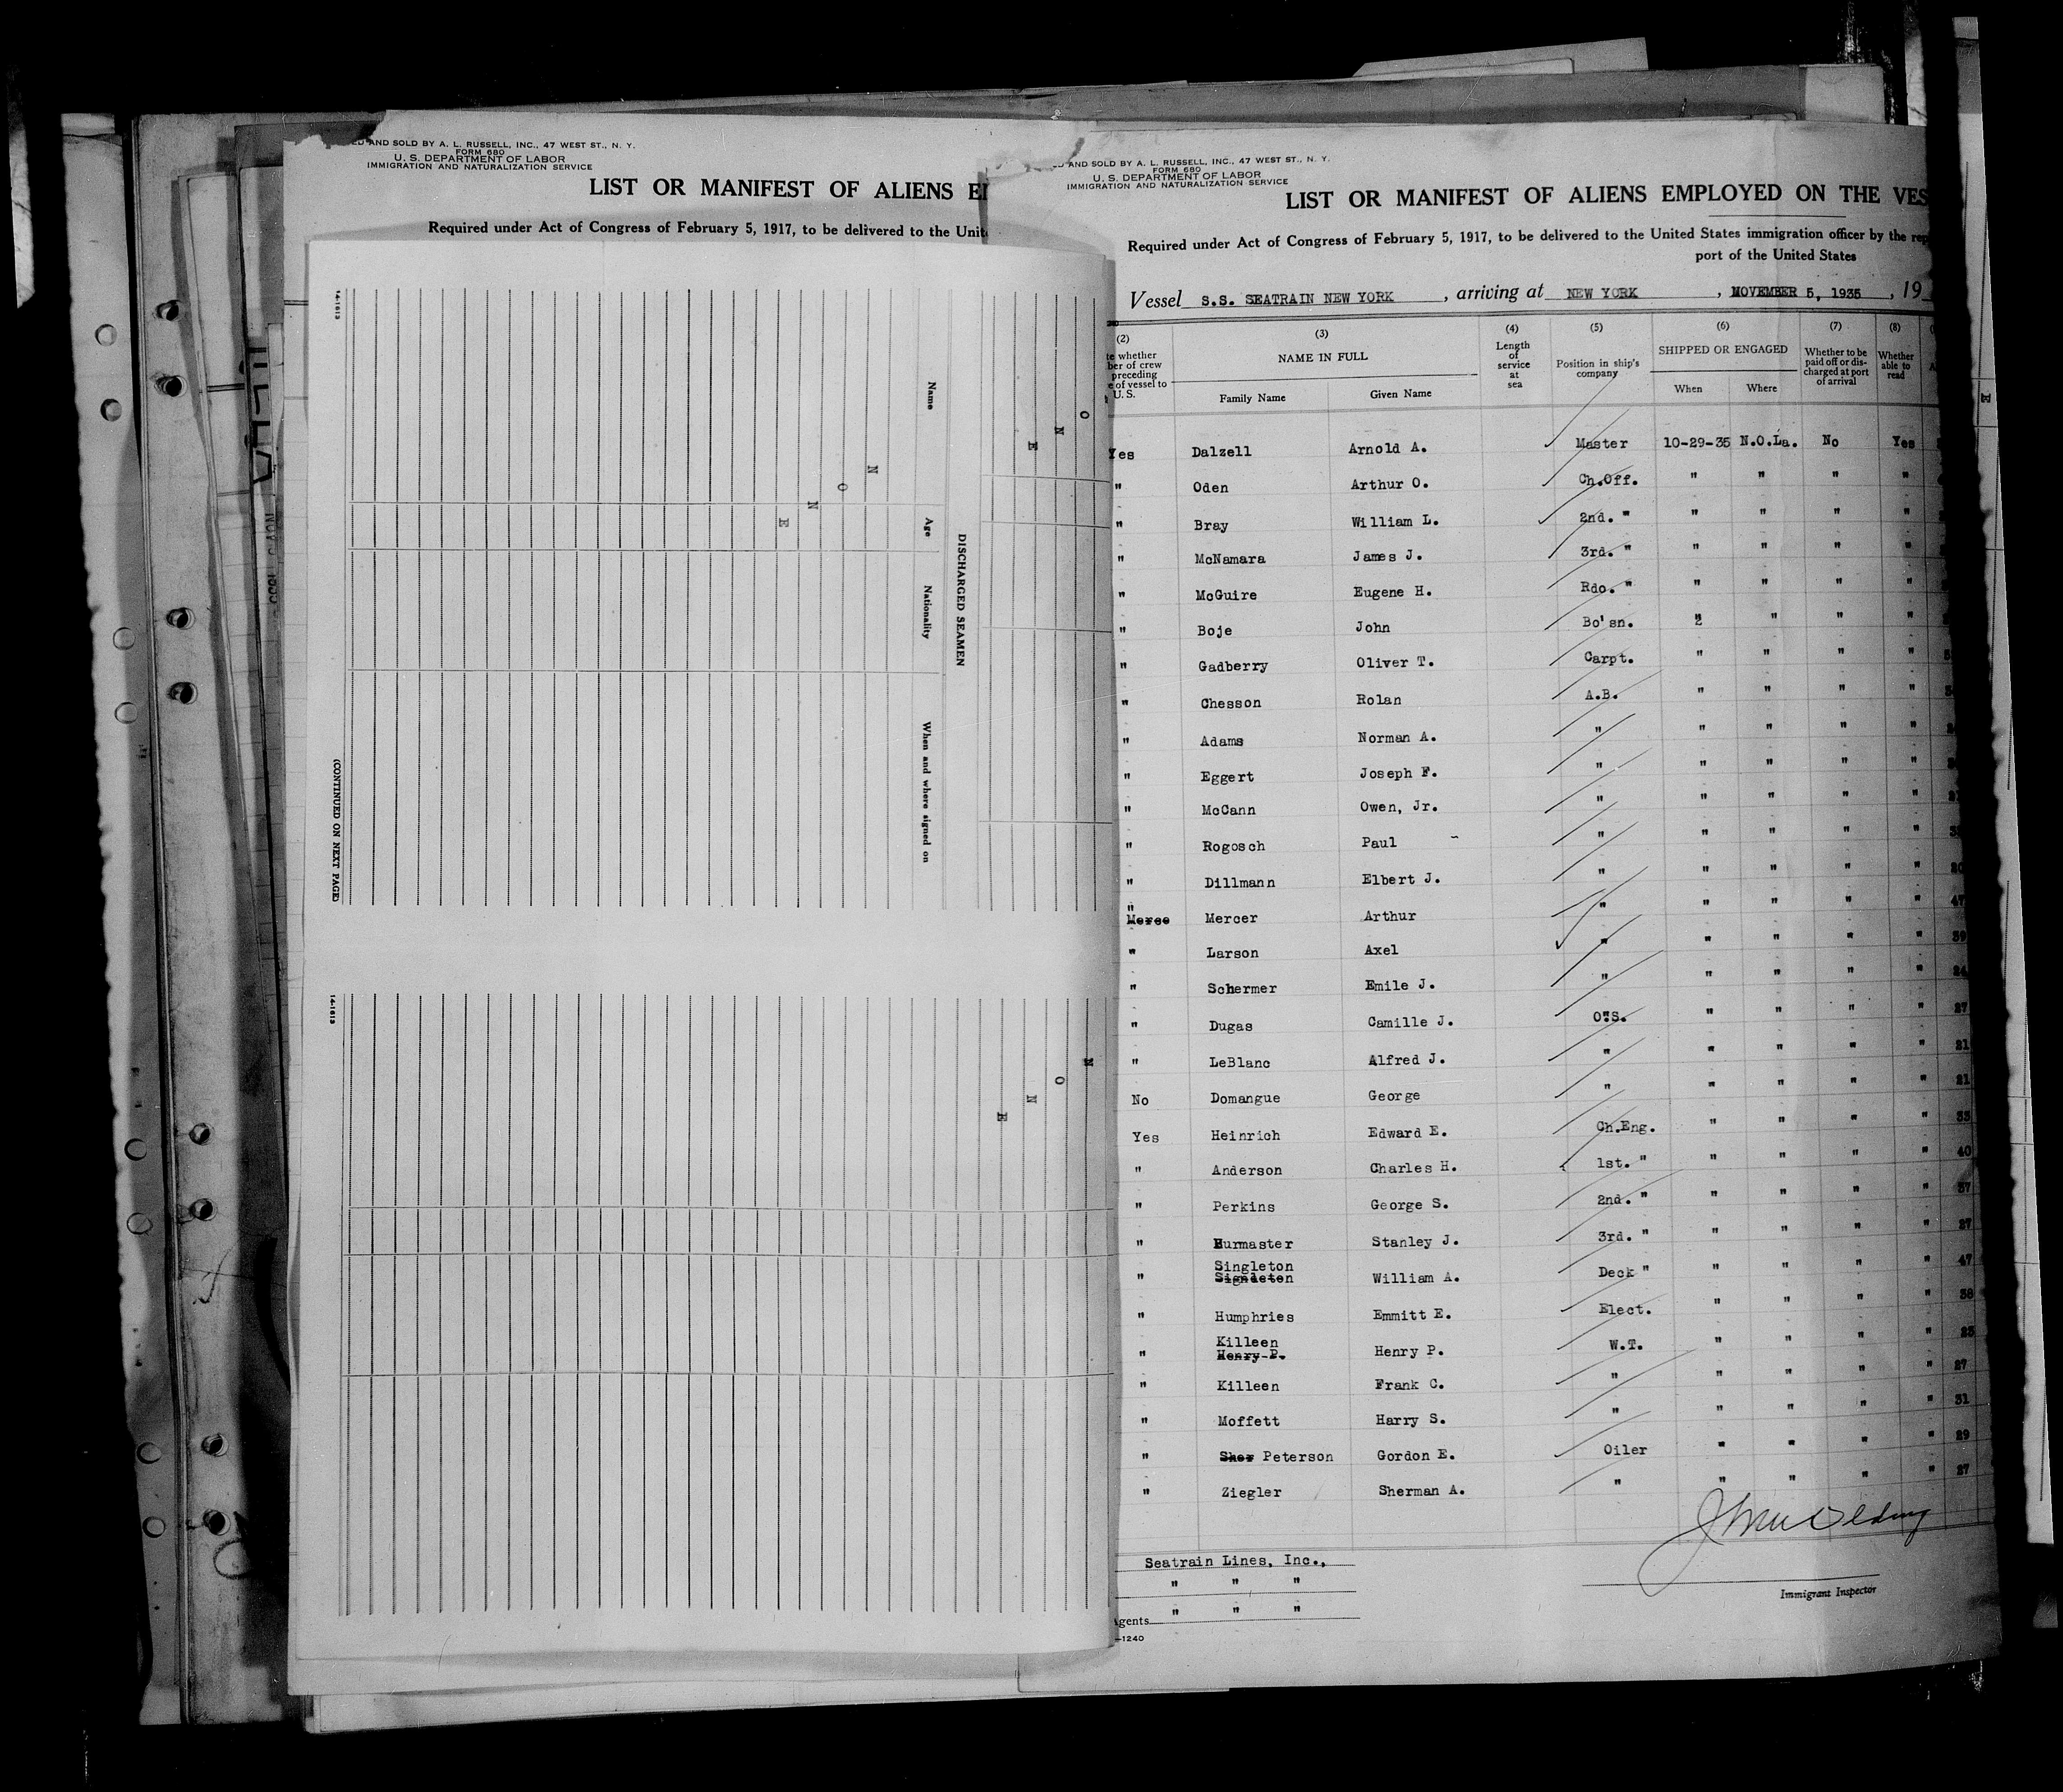 AND SOLD BY A. L. RUSSELL, INC., 47 WEST ST., N. Y.
FORM 680
U. S. DEPARTMENT OF LABOR
IMMIGRATION AND NATURALIZATION SERVICE
LIST OR MANIFEST OF ALIENS
Required under Act of Congress of February 5, 1917, to be delivered to the
14-1613
Name
Age
Nationality
When and where signed on
DISCHARGED SEAMEN
(CONTINUED ON NEXT PAGE)
O N E
N O N E
14-1613
N O N E
AND SOLD BY A. L. RUSSELL, INC., 47 WEST ST., N. Y.
FORM 680
U. S. DEPARTMENT OF LABOR
IMMIGRATION AND NATURALIZATION SERVICE
LIST OR MANIFEST OF ALIENS EMPLOYED ON THE VES
Required under Act of Congress of February 5, 1917, to be delivered to the United States immigration officer by the rep
port of the United States
Vessel S.S. SEATRAIN NEW YORK , arriving at NEW YORK , NOVEMBER 5, 1935 , 19
(2) (3) (4) (5) (6) (7) (8)
whether
ber of crew
preceding
of vessel to
U. S.
NAME IN FULL
Family Name Given Name
Length
of
service
at
sea
Position in ship's
company
SHIPPED OR ENGAGED
When Where
Whether to be
paid off or dis-
charged at port
of arrival
Whether
able to
read
Yes Dalzell Arnold A. Master 10-29-35 N.O.La. No Yes
" Oden Arthur O. Ch.Off. " " " "
" Bray William L. 2nd. " " " " "
" McNamara James J. 3rd. " " " " "
" McGuire Eugene H. Rdo. " " " " "
" Boje John Bo'sn. " " " "
" Gadberry Oliver T. Carpt. " " " "
" Chesson Rolan A.B. " " " "
" Adams Norman A. " " " " "
" Eggert Joseph F. " " " " "
" McCann Owen, Jr. " " " " "
" Rogosch Paul " " " " "
" Dillmann Elbert J. " " " " " 20
" Merce Mercer Arthur " " " " " 47
" Larson Axel " " " " " 39
" Schermer Emile J. " " " " " 24
" Dugas Camille J. O.S. " " " " 27
" LeBlanc Alfred J. " " " " " 21
No Domangue George " " " " " 21
Yes Heinrich Edward E. Ch.Eng. " " " " 33
" Anderson Charles H. 1st. " " " " " 40
" Perkins George S. 2nd. " " " " " 37
" Burmaster Stanley J. 3rd. " " " " " 27
Singleton
" Signleton William A. Deck " " " " " 47
" Humphries Emmitt E. Elect. " " " " 38
Killeen
" Henry P. Henry P. W.T. " " " " 25
" Killeen Frank C. " " " " " 27
" Moffett Harry S. " " " " " 31
" Sher Peterson Gordon E. Oiler " " " " 29
" Ziegler Sherman A. " " " " " 27
Seatrain Lines, Inc.,
" " "
Agents " " "
-1240
Immigrant Inspector